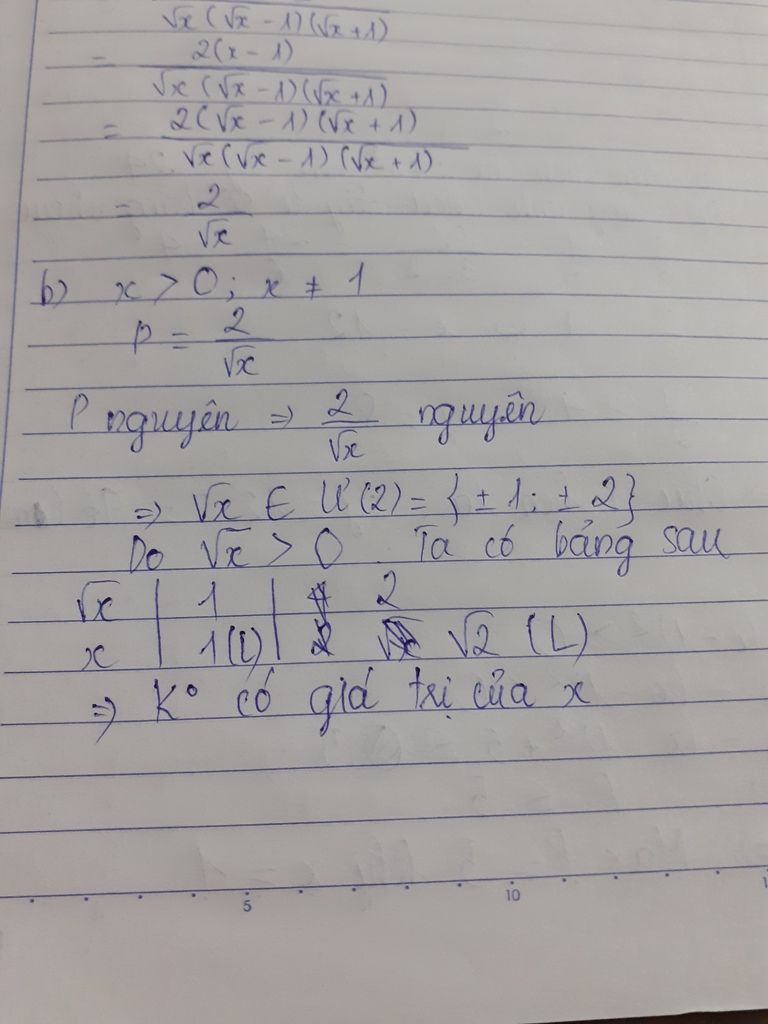 √x (√x - 1)(√x + 1)
= 2(x - 1)
√x (√x - 1)(√x + 1)
= 2(√x - 1)(√x + 1)
√x (√x - 1)(√x + 1)
= 2
√x
b) x > 0; x ≠ 1
P = 2
√x
P nguyên => 2/√x nguyên
=> √x ∈ Ư(2) = {± 1; ± 2}
Do √x > 0. Ta có bảng sau
√x | 1 | 2
x | 1(L) | √2 (L)
=> K° có giá trị của x
5 10